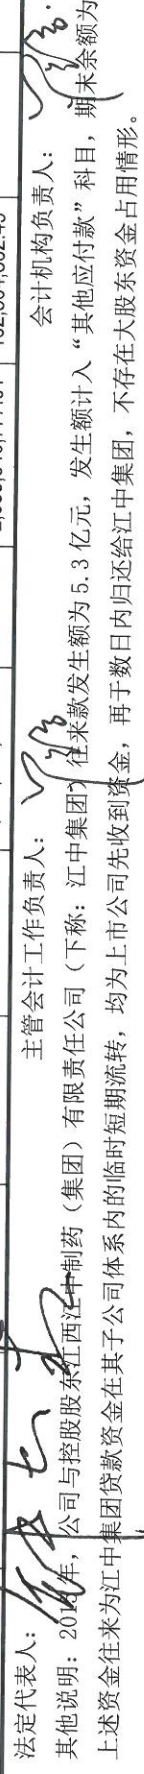 法定代表人： 主管会计工作负责人： 会计机构负责人：
其他说明：201年，公司与控股股东江西江中制药（集团）有限责任公司（下称：江中集团）往来款发生额为5.3亿元，发生额计入“其他应付款”科目，期末余额为
上述资金往来为江中集团贷款资金在其子公司体系内的临时短期流转，均为上市公司先收到资金，再于数日内归还给江中集团，不存在大股东资金占用情形。